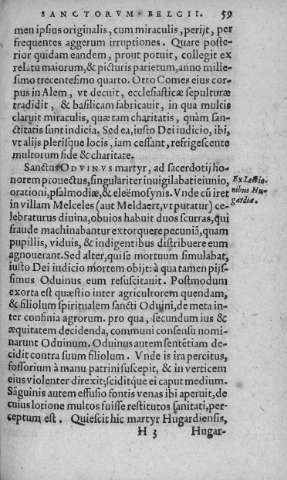 SANCTORVM BELGII. 59
men ipsius originalis, cum miraculis, perijt, per
frequentes aggerum irruptiones. Quare poste-
rior quidam eandem, prout potuit, collegit ex
relatu maiorum, & picturis parietum, anno mille-
simo trecentesimo quarto. Otto Comes eius cor-
pus in Alem, vt decuit, ecclesiasticæ sepulturæ
tradidit, & basilicam fabricauit, in qua multis
claruit miraculis, quæ tam charitatis, quàm san-
ctitatis sunt indicia. Sed ea, iusto Dei iudicio, ibi,
vt alijs plerisque locis, iam cessant, refrigescente
multorum fide & charitate.
Sanctus ODVINVS martyr, ad sacerdotij ho-
norem prouectus, singulariter inuigilabat ieiunio,
orationi, psalmodiæ, & eleemosynis. Vnde cũ iret
in villam Melceles (aut Meldaert, vt putatur) ce-
lebraturus diuina, obuios habuit duos scurras, qui
fraude machinabantur extorquere pecuniã, quam
pupillis, viduis, & indigentibus distribuere eum
agnouerant. Sed alter, qui se mortuum simulabat,
iusto Dei iudicio mortem obijt: à qua tamen pijs-
simus Oduinus eum resuscitauit. Postmodum
exorta est quæstio inter agricultorem quendam,
& filiolum spiritualem sancti Oduini, de meta in-
ter confinia agrorum. pro qua, secundum ius &
æquitatem decidenda, communi consensu nomi-
narunt Oduinum. Oduinus autem sententiam de-
cidit contra suum filiolum. Vnde is ira percitus,
fossorium à manu patrini suscepit, & in verticem
eius violenter direxit, sciditque ei caput medium.
Sãguinis autem effusio fontis venas ibi aperuit, de
cuius lotione multos fuisse restitutos sanitati, per-
ceptum est. Quiescit hic martyr Hugardiensis,
H 3 Hugar-
Ex Lectio-
nibus Hu-
gardiæ.